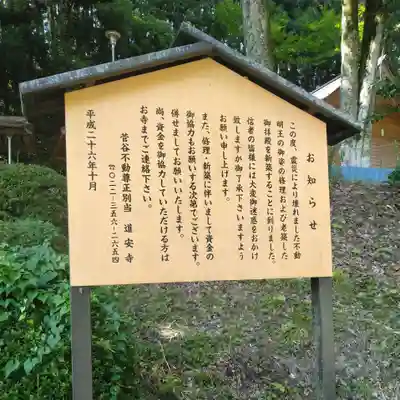 お知らせ
この度、震災により壊れました不動
明王の御姿の修理および老築した
御拝殿を新築することに到りました。
信者の皆様には大変御迷惑をおかけ
致しますが御了承下さいますよう
お願い申し上げます。
また、修理・新築に伴いまして資金の
御協力もお願いする次第でございます。
併せましてお願いいたします。
尚、資金を御協力していただける方は
お寺までご連絡下さい。
平成二十六年十月
菅谷不動尊正別当 道安寺
☎〇二二‐三五六‐二六五四